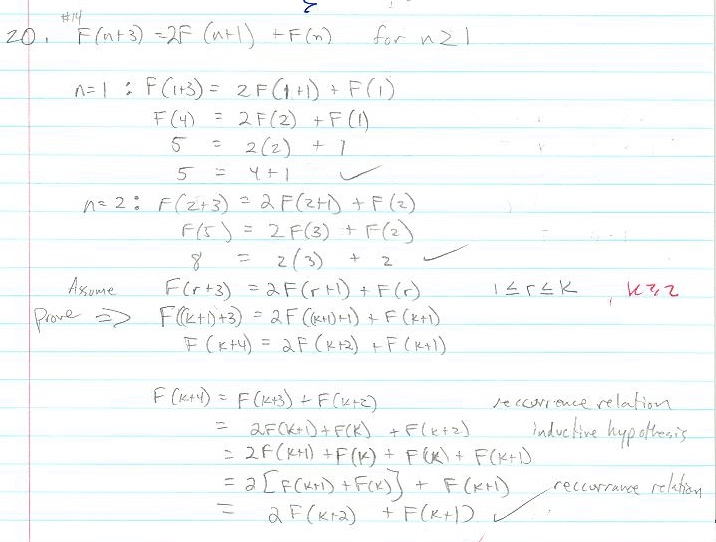 #14
20. F(n+3) = 2F(n+1) + F(n) for n≥1
n=1 : F(1+3) = 2F(1+1) + F(1)
F(4) = 2F(2) + F(1)
5 = 2(2) + 1
5 = 4+1 ✓
n=2 : F(2+3) = 2F(2+1) + F(2)
F(5) = 2F(3) + F(2)
8 = 2(3) + 2 ✓
Assume F(r+3) = 2F(r+1) + F(r) 1≤r≤k , k≥2
Prove => F((k+1)+3) = 2F((k+1)+1) + F(k+1)
F(k+4) = 2F(k+2) + F(k+1)
F(k+4) = F(k+3) + F(k+2) reccurrence relation
= 2F(k+1) + F(k) + F(k+2) inductive hypothesis
= 2F(k+1) + F(k) + F(k) + F(k+1)
= 2[F(k+1) + F(k)] + F(k+1) reccurrance relation
= 2F(k+2) + F(k+1) ✓